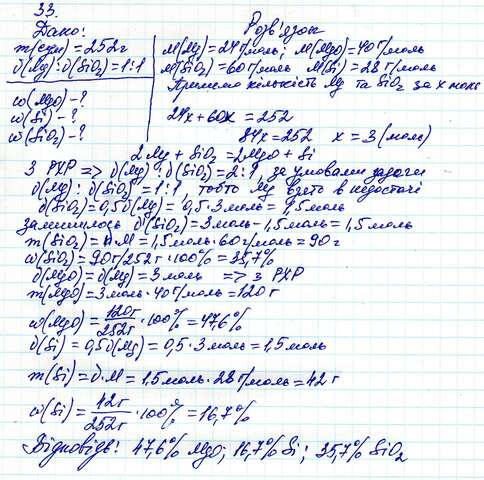 33.
Дано: Розв'язок
m(сум) = 252г M(Mg) = 24 г/моль; M(MgO) = 40 г/моль
ν(Mg) : ν(SiO₂) = 1:1 M(SiO₂) = 60 г/моль M(Si) = 28 г/моль
Приймемо кількість Mg та SiO₂ за x моль
ω(MgO) - ?
ω(Si) - ? 24x + 60x = 252
ω(SiO₂) - ? 84x = 252 x = 3 (моль)
2Mg + SiO₂ = 2MgO + Si
З РХР => ν(Mg) : ν(SiO₂) = 2:1, за умовами задачі
ν(Mg) : ν(SiO₂) = 1:1, тобто Mg взято в недостачі
ν(SiO₂) = 0,5ν(Mg) = 0,5·3моль = 1,5моль
залишилось ν(SiO₂) = 3моль - 1,5моль = 1,5моль
m(SiO₂) = ν·M = 1,5моль·60г/моль = 90г
ω(SiO₂) = 90г/252г·100% = 35,7%
ν(MgO) = ν(Mg) = 3моль => з РХР
m(MgO) = 3моль·40г/моль = 120г
ω(MgO) = 120г/252г · 100% = 47,6%
ν(Si) = 0,5ν(Mg) = 0,5·3моль = 1,5моль
m(Si) = ν·M = 1,5моль·28г/моль = 42г
ω(Si) = 42г/252г · 100% = 16,7%
Відповідь: 47,6% MgO; 16,7% Si; 35,7% SiO₂